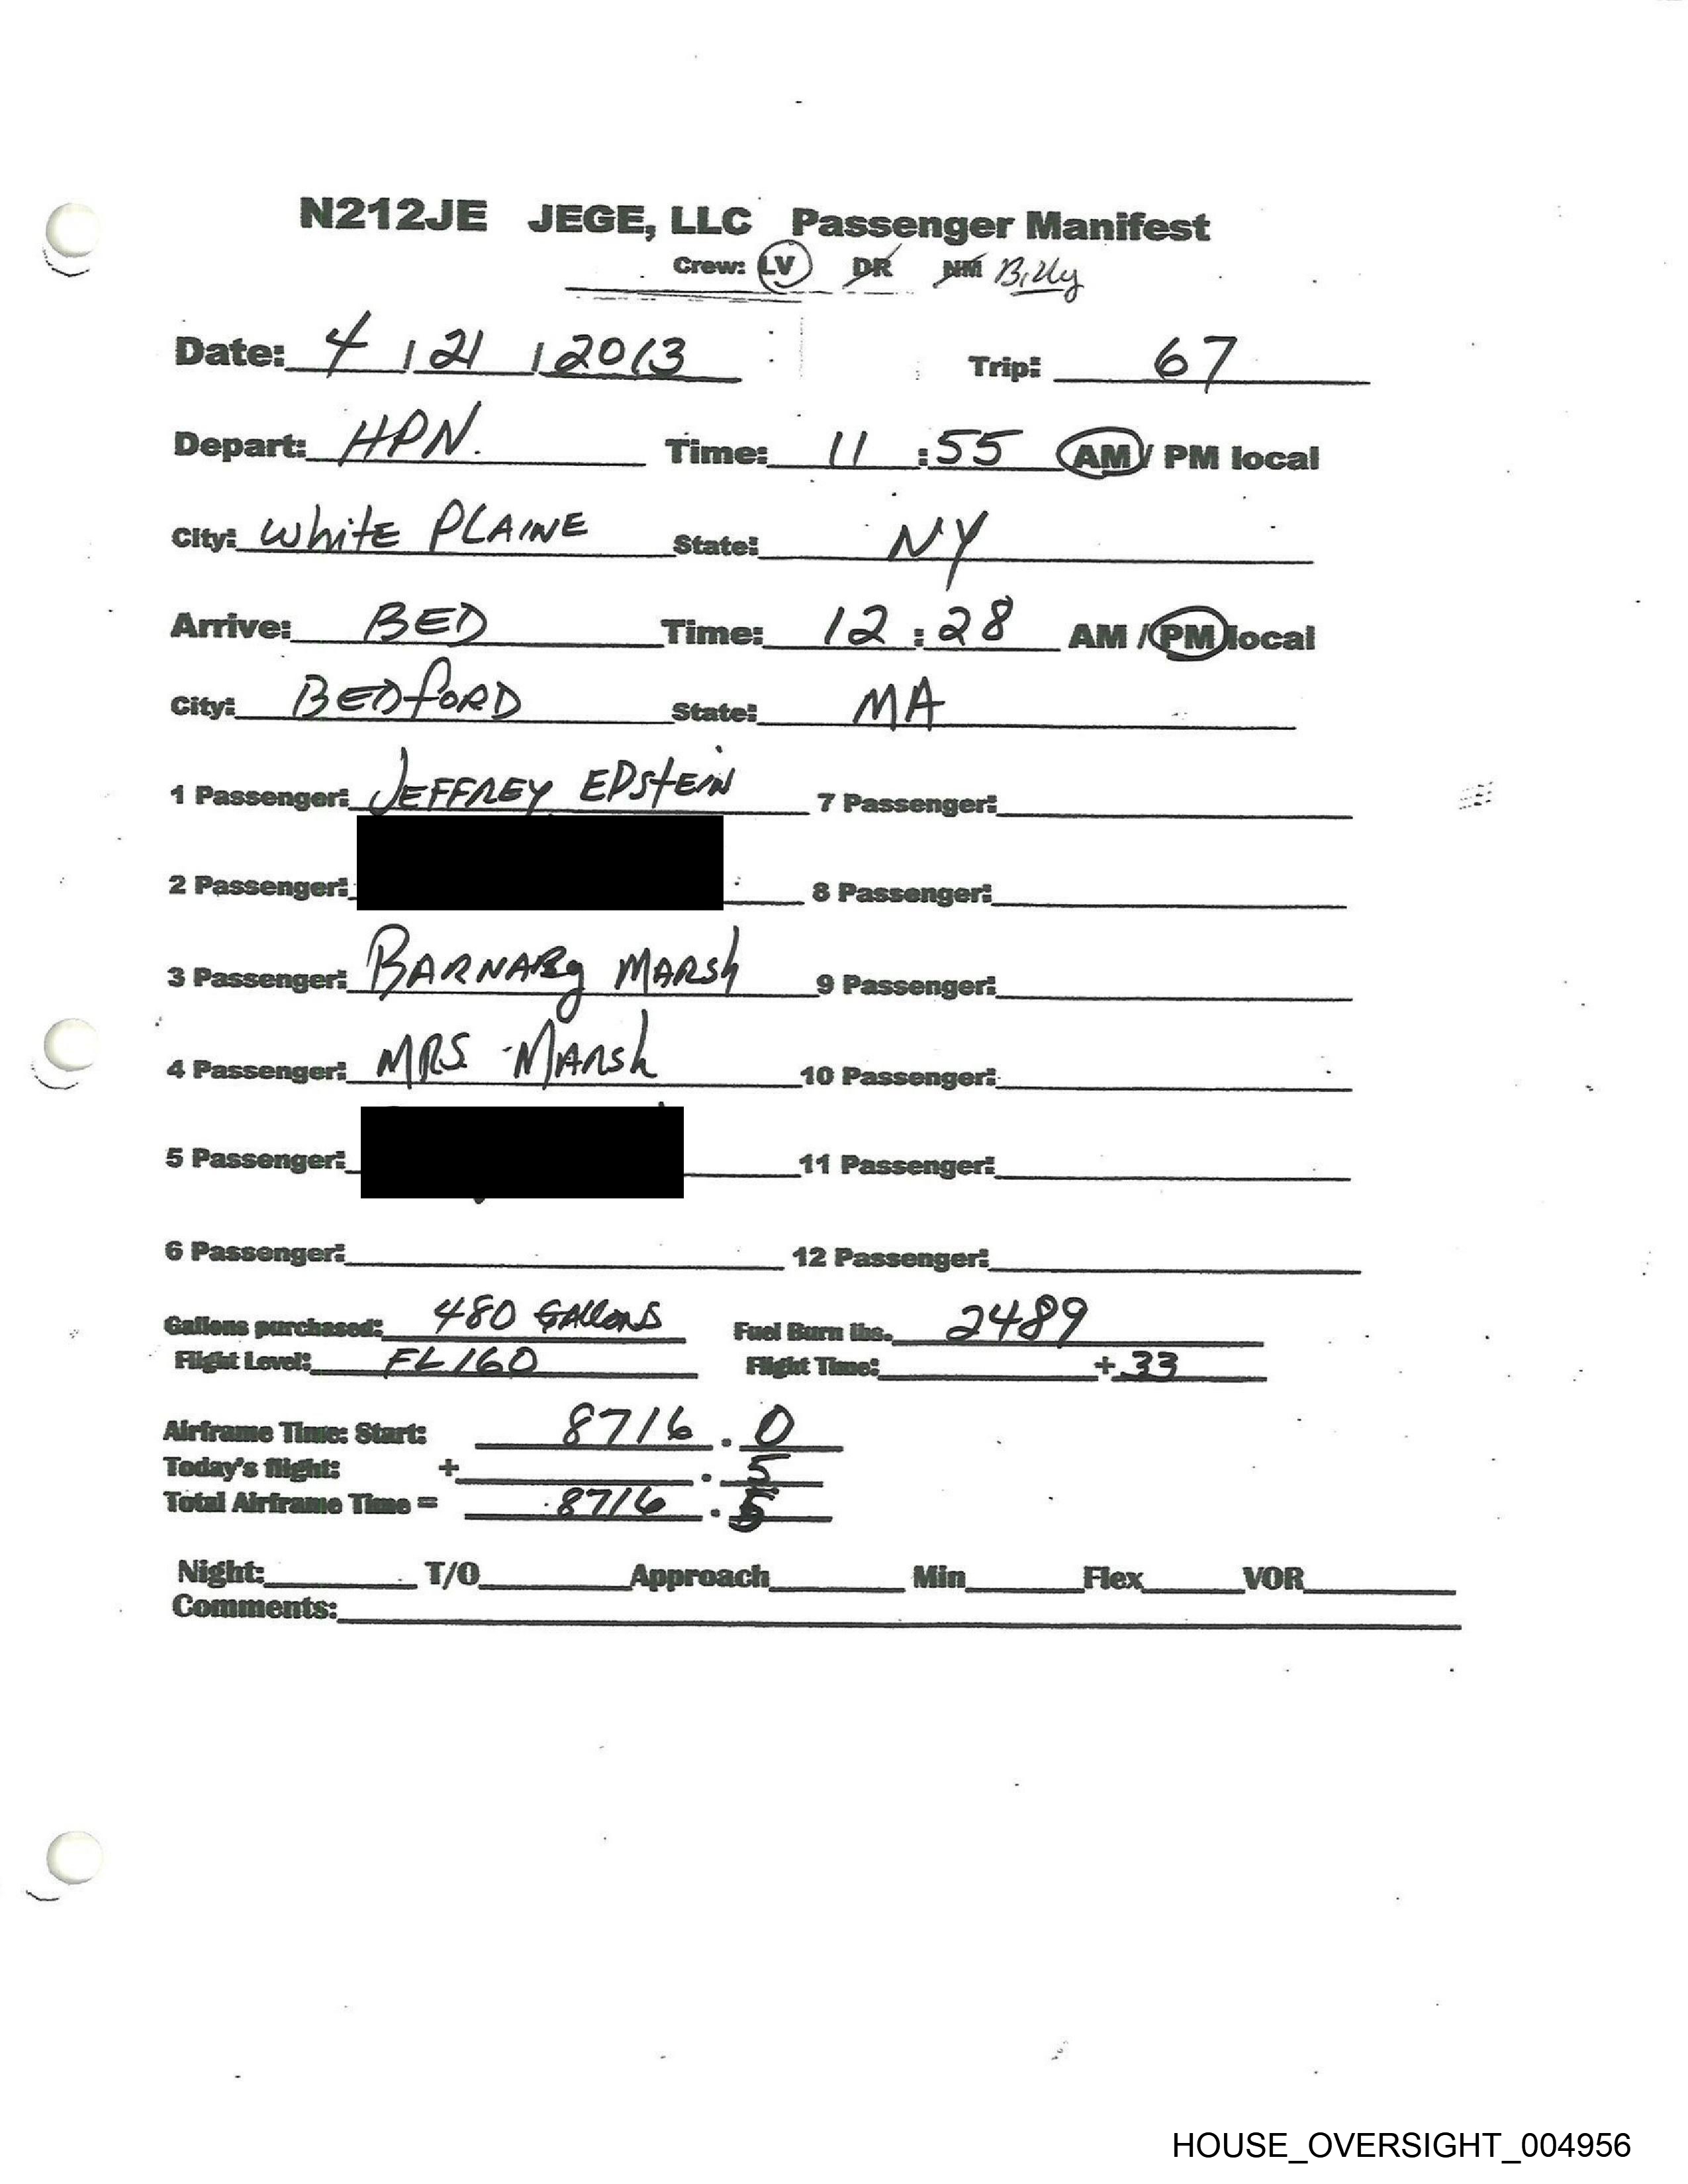 N212JE JEGE, LLC Passenger Manifest
Crew: LV DR NM Billy
Date: 4 / 21 / 2013 Trip: 67
Depart: HPN. Time: 11 : 55 AM / PM local
City: White PLAINE State: NY
Arrive: BED Time: 12 : 28 AM / PM local
City: BEDfORD State: MA
1 Passenger: JEFFREY EPStEIN 7 Passenger:
2 Passenger: 8 Passenger:
3 Passenger: BARNABy MARSh 9 Passenger:
4 Passenger: MRS MARSh 10 Passenger:
5 Passenger: 11 Passenger:
6 Passenger: 12 Passenger:
Gallons purchased: 480 GAllonS Fuel Burn lbs. 2489
Flight Level: FL 160 Flight Time: + 33
Airframe Time: Start: 8716 . 0
Today's flight: + . 5
Total Airframe Time = 8716 . 5
Night: T/O Approach Min Flex VOR
Comments:
HOUSE_OVERSIGHT_004956